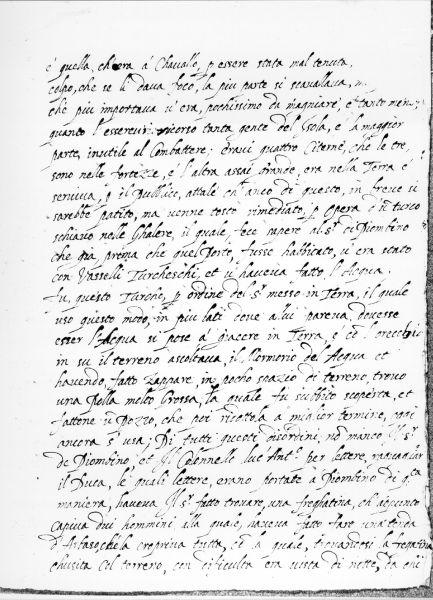 è quella, ch'era à Chavalle, p essere stata mal tenuta,
colpo, che se li dava foco, la piu parte si scavallava,
che piu importava v'era, pochissimo da magniare, e tanto men
quanto l'esservi ricorso tanta gente del Isola, e la maggior
parte, inutile al Combattere; Eravi quattro Citerne, che le tre
sono nelle fortezze, e l'altra assai grande, era nella Terra e
serviva, p il Publico, attale ch'anco di questo, in breve si
sarebbe patito, ma venne tosto rimediato, p opera d'un turco
schiavo nelle Ghalere, il quale, fece sapere al Sr di Piombino
che già, prema che quel Porto, fusse habbitato, vi era stato
con Vasselli Turcheschi, et vi haveva fatto l'Acqua.
fu, questo Turcho, p ordine del Sr messo in Terra, il quale
uso questo modo, in piu lati dove a lui pareva, dovesse
esser l'Acqua si pose a giacere in Terra, e cō l'orecchio
in su il terreno ascoltava, il Mormorio del'Acqua et
havendo, fatto zappare, in pocho spazio di terreno, trovo
una Polla molto Grossa, la quale fu subbito scoperta, et
fattone ū Pozzo, che poi ridottola a miglior termine, ogni
ancora s'usa; Di tutti questi disordini, nō manco Il Sr
de Piombino, et Il Colonnello luc'Anto per lettere, raguagliar
il Duca, le quali lettere, erano portate a Piombino di qta
maniera, haveva Il Sr fatto trovare, una freghatina, ch'appunto
capiva dui hommini ala quale, haveva fatto fare una tenda
d'Arbascio che la copriva tutta, cō la quale, trovandosi la fregatina
chusita col terreno, con dificulta era vista di notte, da chi